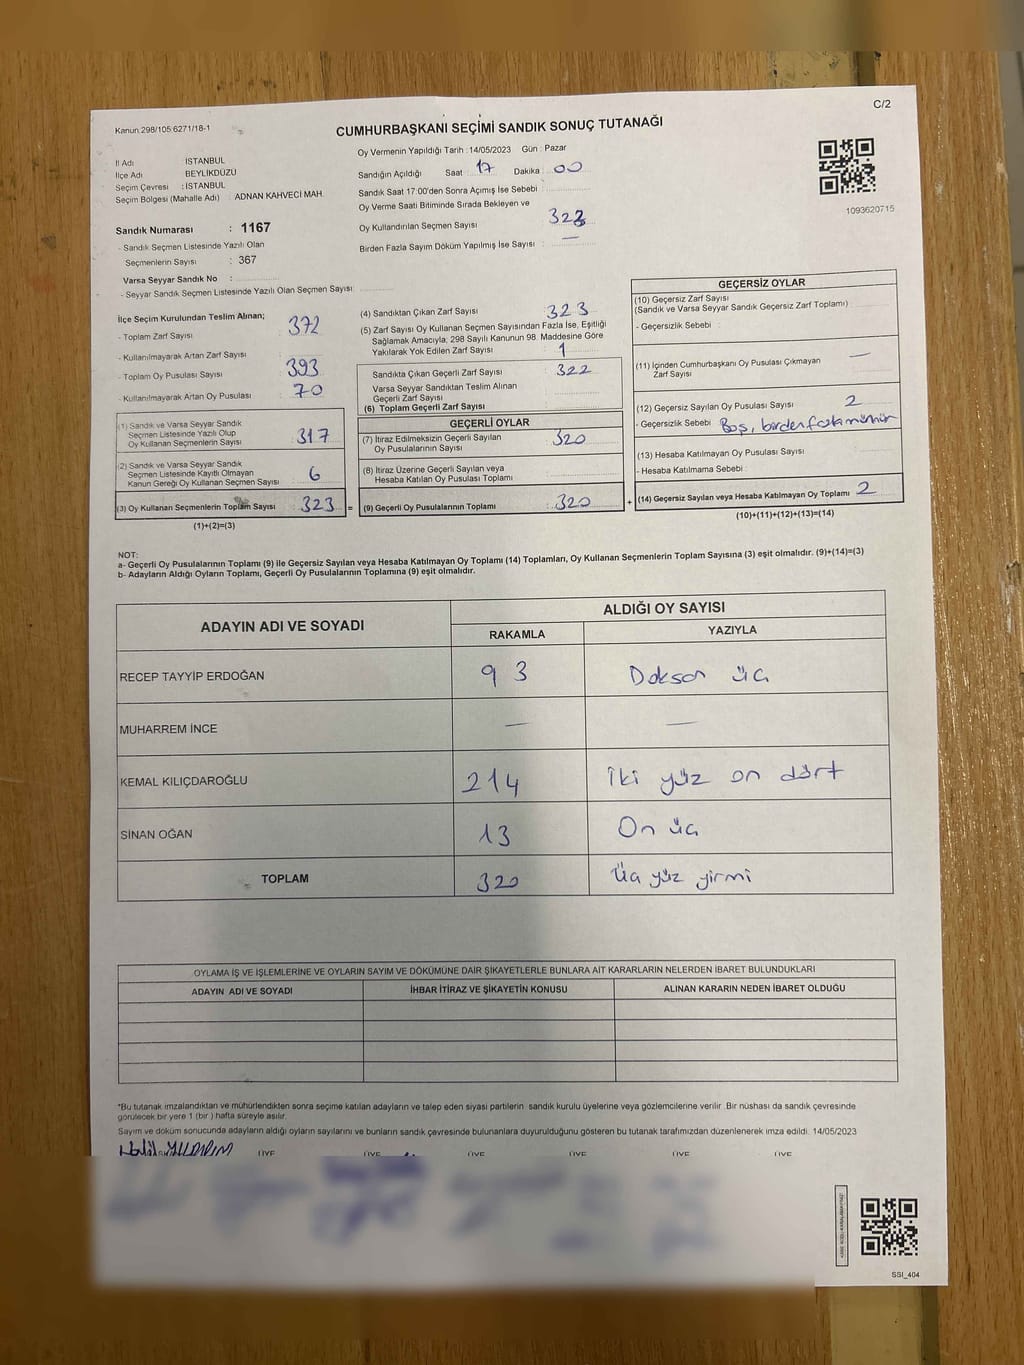 C/2
Kanun:298/105 6271/18-1
CUMHURBAŞKANI SEÇİMİ SANDIK SONUÇ TUTANAĞI
İl Adı : İSTANBUL
İlçe Adı BEYLİKDÜZÜ
Seçim Çevresi : İSTANBUL
Seçim Bölgesi (Mahalle Adı) : ADNAN KAHVECİ MAH.
Sandık Numarası : 1167
- Sandık Seçmen Listesinde Yazılı Olan
Seçmenlerin Sayısı : 367
Varsa Seyyar Sandık No :
- Seyyar Sandık Seçmen Listesinde Yazılı Olan Seçmen Sayısı :
Oy Vermenin Yapıldığı Tarih : 14/05/2023 Gün : Pazar
Sandığın Açıldığı Saat : 17 Dakika : 00
Sandık Saat 17:00'den Sonra Açılmış İse Sebebi :
Oy Verme Saati Bitiminde Sırada Bekleyen ve
Oy Kullandırılan Seçmen Sayısı : 323
Birden Fazla Sayım Döküm Yapılmış İse Sayısı : —
1093620715
İlçe Seçim Kurulundan Teslim Alınan;
- Toplam Zarf Sayısı 372
- Kullanılmayarak Artan Zarf Sayısı
- Toplam Oy Pusulası Sayısı 393
- Kullanılmayarak Artan Oy Pusulası 70
(1) Sandık ve Varsa Seyyar Sandık
Seçmen Listesinde Yazılı Olup
Oy Kullanan Seçmenlerin Sayısı 317
(2) Sandık ve Varsa Seyyar Sandık
Seçmen Listesinde Kayıtlı Olmayan
Kanun Gereği Oy Kullanan Seçmen Sayısı 6
(3) Oy Kullanan Seçmenlerin Toplam Sayısı 323 =
(1)+(2)=(3)
(4) Sandıktan Çıkan Zarf Sayısı 323
(5) Zarf Sayısı Oy Kullanan Seçmen Sayısından Fazla İse, Eşitliği
Sağlamak Amacıyla; 298 Sayılı Kanunun 98. Maddesine Göre
Yakılarak Yok Edilen Zarf Sayısı 1
Sandıkta Çıkan Geçerli Zarf Sayısı 322
Varsa Seyyar Sandıktan Teslim Alınan
Geçerli Zarf Sayısı
(6) Toplam Geçerli Zarf Sayısı
GEÇERLİ OYLAR
(7) İtiraz Edilmeksizin Geçerli Sayılan
Oy Pusulalarının Sayısı 320
(8) İtiraz Üzerine Geçerli Sayılan veya
Hesaba Katılan Oy Pusulası Toplamı
(9) Geçerli Oy Pusulalarının Toplamı 320 +
GEÇERSİZ OYLAR
(10) Geçersiz Zarf Sayısı
(Sandık ve Varsa Seyyar Sandık Geçersiz Zarf Toplamı)
- Geçersizlik Sebebi :
(11) İçinden Cumhurbaşkanı Oy Pusulası Çıkmayan —
Zarf Sayısı
(12) Geçersiz Sayılan Oy Pusulası Sayısı 2
- Geçersizlik Sebebi Boş, birden fazla mühür
(13) Hesaba Katılmayan Oy Pusulası Sayısı
- Hesaba Katılmama Sebebi
(14) Geçersiz Sayılan veya Hesaba Katılmayan Oy Toplamı 2
(10)+(11)+(12)+(13)=(14)
NOT:
a- Geçerli Oy Pusulalarının Toplamı (9) ile Geçersiz Sayılan veya Hesaba Katılmayan Oy Toplamı (14) Toplamları, Oy Kullanan Seçmenlerin Toplam Sayısına (3) eşit olmalıdır. (9)+(14)=(3)
b- Adayların Aldığı Oyların Toplamı, Geçerli Oy Pusulalarının Toplamına (9) eşit olmalıdır.
ADAYIN ADI VE SOYADI ALDIĞI OY SAYISI
RAKAMLA YAZIYLA
RECEP TAYYİP ERDOĞAN 93 Doksan üç
MUHARREM İNCE — —
KEMAL KILIÇDAROĞLU 214 İki yüz on dört
SİNAN OĞAN 13 On üç
TOPLAM 320 Üç yüz yirmi
OYLAMA İŞ VE İŞLEMLERİNE VE OYLARIN SAYIM VE DÖKÜMÜNE DAİR ŞİKAYETLERLE BUNLARA AİT KARARLARIN NELERDEN İBARET BULUNDUKLARI
ADAYIN ADI VE SOYADI İHBAR İTİRAZ VE ŞİKAYETİN KONUSU ALINAN KARARIN NEDEN İBARET OLDUĞU
*Bu tutanak imzalandıktan ve mühürlendikten sonra seçime katılan adayların ve talep eden siyasi partilerin sandık kurulu üyelerine veya gözlemcilerine verilir. Bir nüshası da sandık çevresinde
görülecek bir yere 1 (bir ) hafta süreyle asılır.
Sayım ve döküm sonucunda adayların aldığı oyların sayılarını ve bunların sandık çevresinde bulunanlara duyurulduğunu gösteren bu tutanak tarafımızdan düzenlenerek imza edildi. 14/05/2023
Halil YILDIRIM ÜYE ÜYE ÜYE ÜYE ÜYE ÜYE
SSİ_404